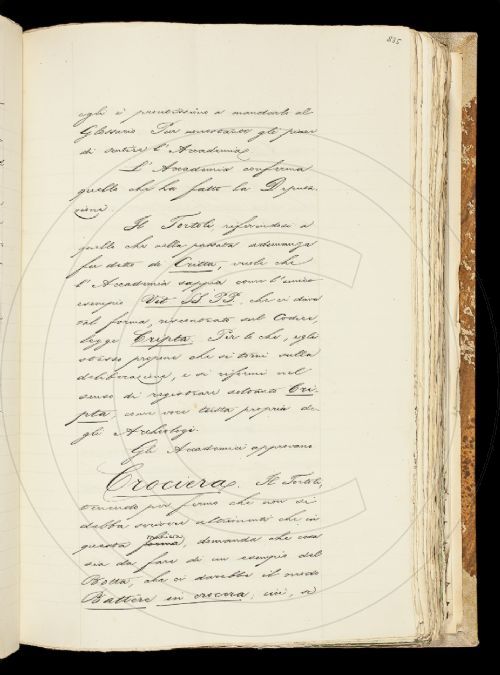 835
egli è prontissimo a mandarle al
Glossario. Pur nonostante gli piace
di sentire l'Accademia.
L'Accademia conferma
quello che ha fatto la Deputa-
zione.
Il Tortoli, riferendosi a
quello che nella passata adunanza
fu detto di Critta, vuole che
l'Accademia sappia come l'unico
esempio Vit. SS. PP. che ci dava
tal forma, riscontrato sul Codice,
legge Cripta. Per lo che, egli
stesso propone che si torni sulla
deliberazione, e si riformi nel
senso di registrare soltanto Cri-
pta, come voce tutta propria de-
gli Archeologi.
Gli Accademici approvano.
Crociera. Il Tortoli,
tenendo per fermo che non si
debba scrivere altrimenti che in
questa maniera, domanda che cosa
sia da fare di un esempio del
Botta, che ci darebbe il modo
Battere in crocera; cioè, se